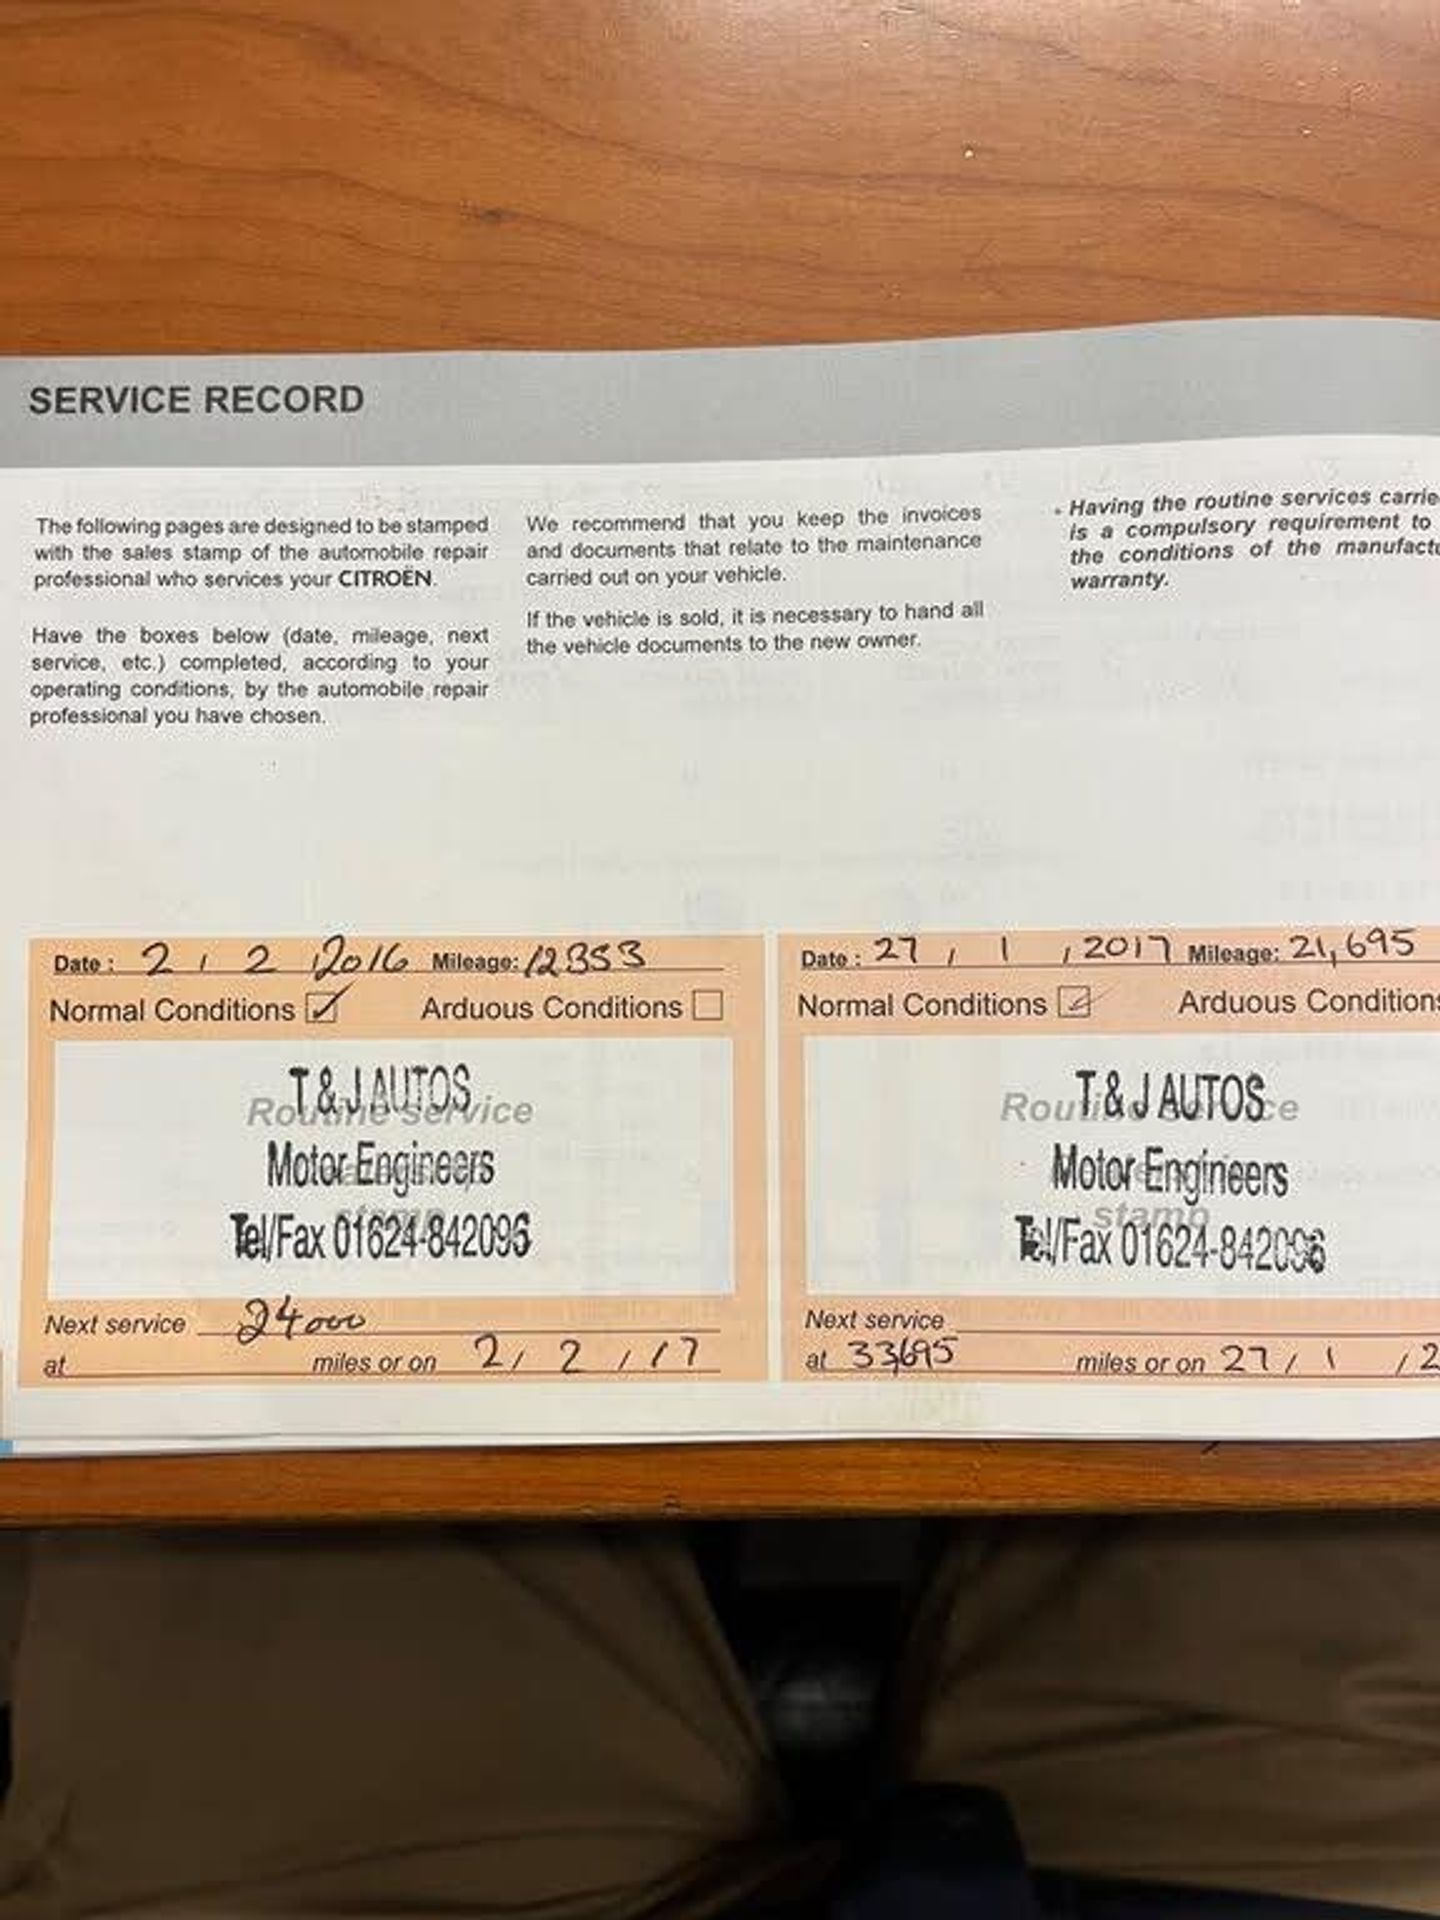 SERVICE RECORD
The following pages are designed to be stamped
with the sales stamp of the automobile repair
professional who services your CITROËN.
Have the boxes below (date, mileage, next
service, etc.) completed, according to your
operating conditions, by the automobile repair
professional you have chosen.
We recommend that you keep the invoices
and documents that relate to the maintenance
carried out on your vehicle.
If the vehicle is sold, it is necessary to hand all
the vehicle documents to the new owner.
Having the routine services carrie
is a compulsory requirement to
the conditions of the manufactu
warranty.
Date : 2 / 2 / 2016 Mileage: 12353
Normal Conditions Arduous Conditions
Routine service
stamp
T & J AUTOS
Motor Engineers
Tel/Fax 01624-842096
Next service 24000
at miles or on 2 / 2 / 17
Date : 27 / 1 / 2017 Mileage: 21,695
Normal Conditions Arduous Conditions
Routine service
stamp
T & J AUTOS
Motor Engineers
Tel/Fax 01624-842096
Next service
at 33,695 miles or on 27 / 1 / 2